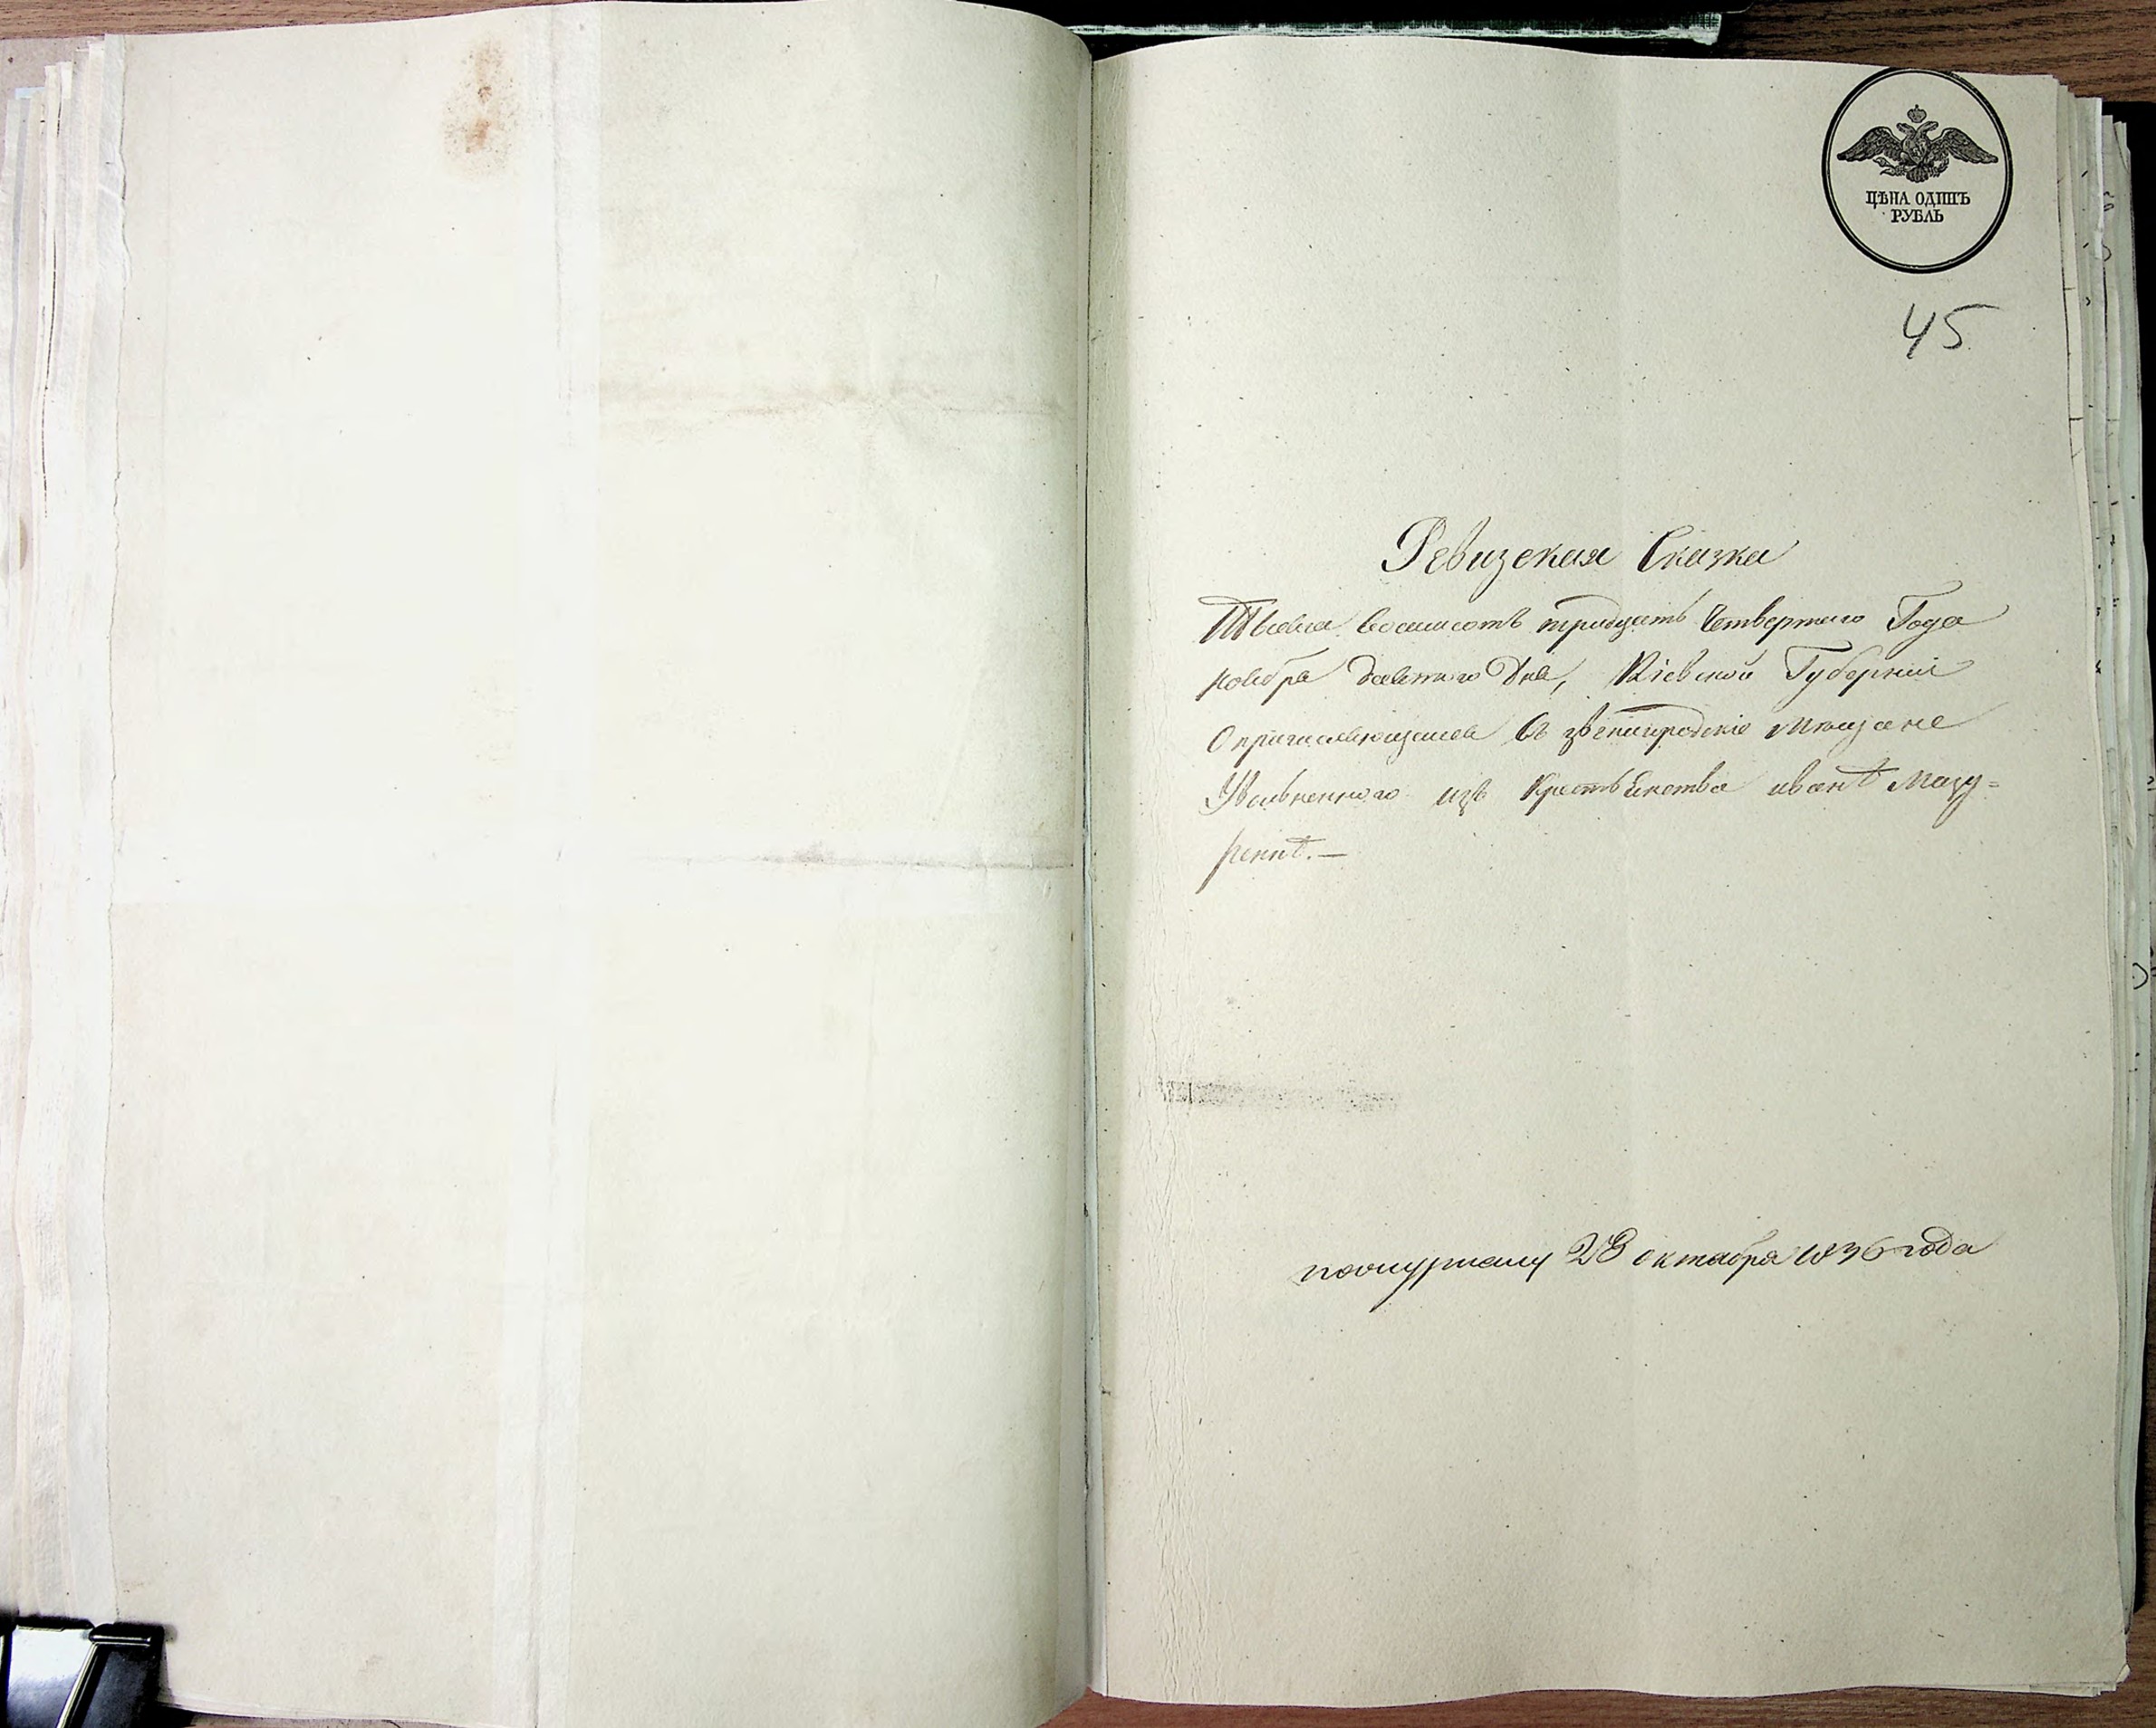 ЦѢНА ОДИНЪ
РУБЛЬ
45
Ревизская Сказка
Тысяча восемсотъ тридцать Четвертаго Года
ноября девятого Дня, Кіевской Губерніи
О причисляющемся въ звенигородскіе мещане
Уволненного изъ Крестьянства иванѣ Мазу=
ренкѣ.—
28 октября 1836 года